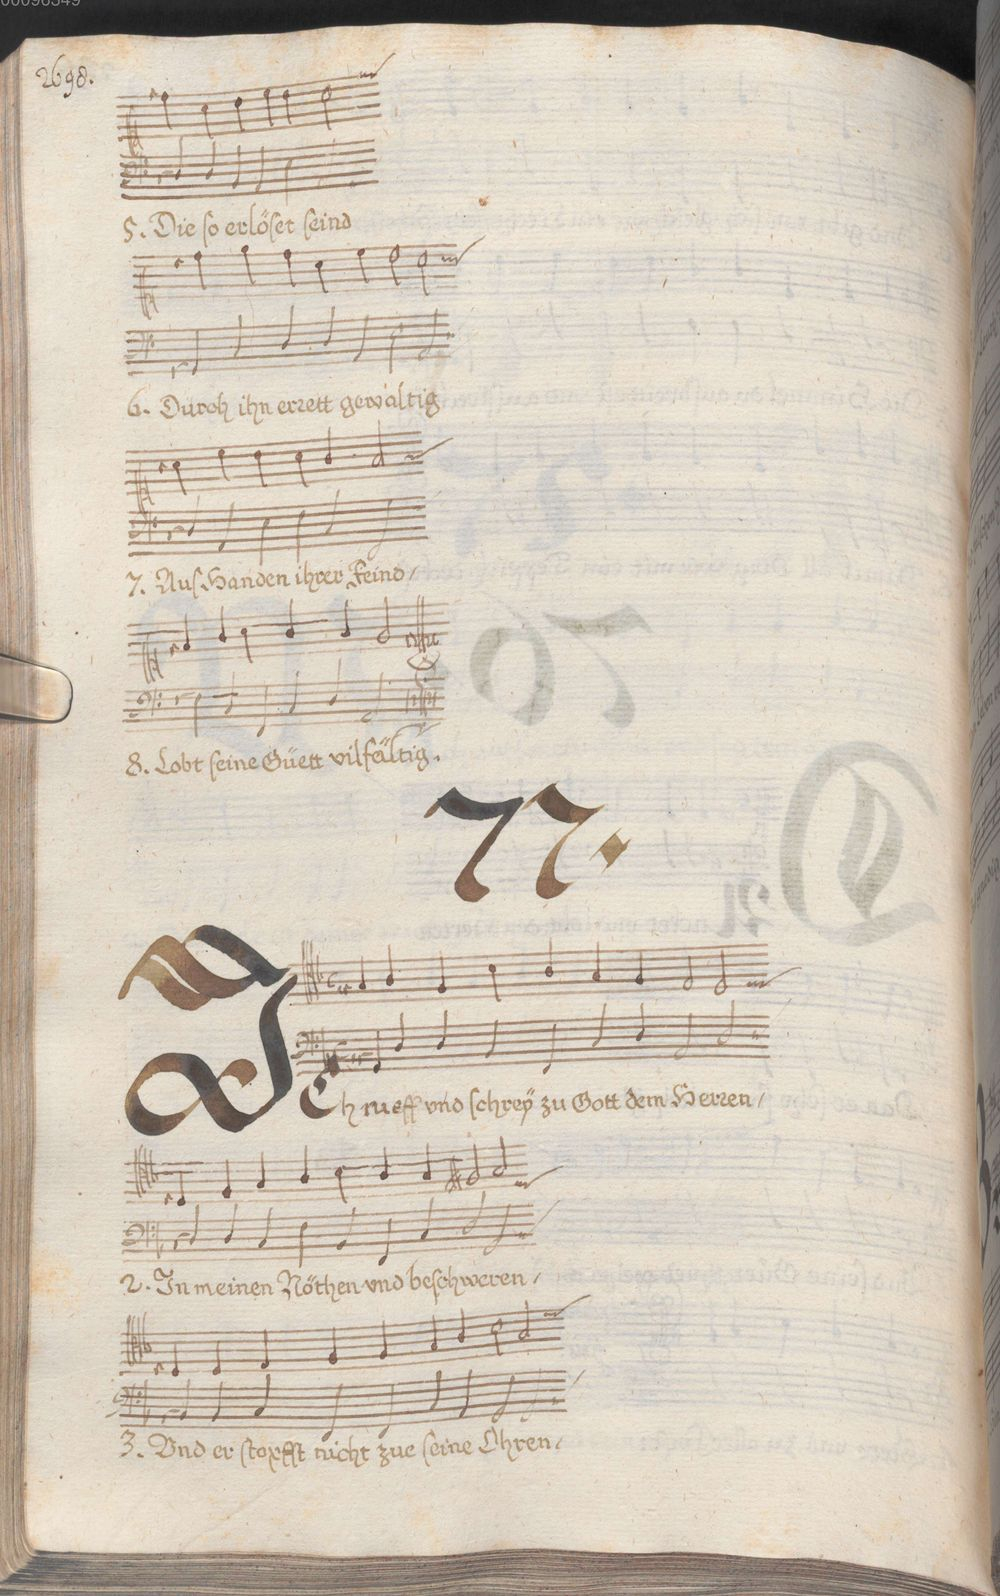 2698.
5. Die so erlöset seind
6. Durch ihn errett gewaltig
7. Aus Handen ihrer Feind/
8. Lobt seine Güett vilfältig.
77.
ICh rueff vnd schreÿ zu Gott dem Herren/
2. In meinen Nöthen vnd beschweren/
3. Vnd er stopfft nicht zue seine Ohren/